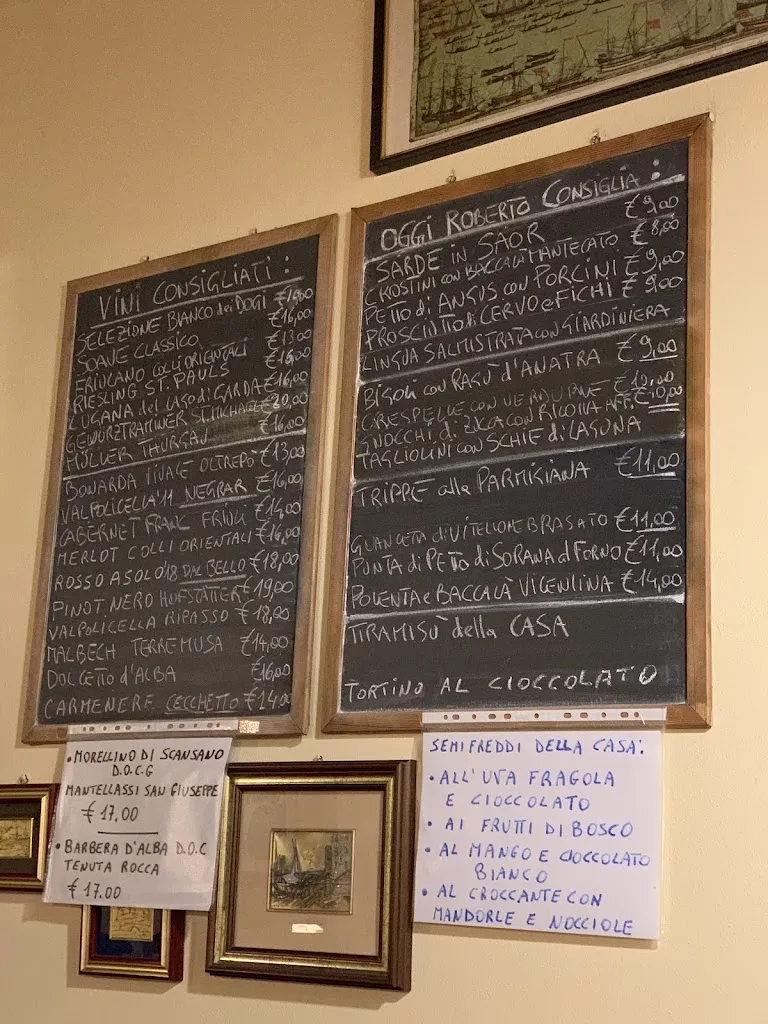 VINI CONSIGLIATI:
SELEZIONE BIANCO dei DOGI
SOAVE CLASSICO €16,00
FRIULANO COLLI ORIENTALI €13,00
RIESLING ST. PAULS €16,00
LUGANA del LAGO di GARDA €16,00
GEWÜRZTRAMINER ST. MICHAEL €20,00
MÜLLER THURGAU €16,00
BONARDA VIVACE OLTREPO' €13,00
VALPOLICELLA'11 NEGRAR €16,00
CABERNET FRANC FRIULI €14,00
MERLOT COLLI ORIENTALI €16,00
ROSSO ASOLO'18 DAL BELLO €18,00
PINOT NERO HOFSTÄTTER €19,00
VALPOLICELLA RIPASSO €18,00
MALBECH TERRE MUSA €14,00
DOLCETTO d'ALBA €16,00
CARMENERE CECCHETTO €14,00
• MORELLINO DI SCANSANO
D.O.C.G
MANTELLASSI SAN GIUSEPPE
€ 17.00
• BARBERA D'ALBA D.O.C
TENUTA ROCCA
€ 17.00
OGGI ROBERTO CONSIGLIA:
SARDE IN SAOR €9,00
CROSTINI con BACCALÀ MANTECATO €8,00
PETTO di ANGUS con PORCINI €9,00
PROSCIUTTO di CERVO e FICHI €9,00
LINGUA SALMISTRATA con GIARDINIERA
BIGOLI con RAGÙ d'ANATRA €9,00
CRESPELLE CON VERDURE €10,00
GNOCCHI di ZUCA con RICOTTA AFF. €10,00
TAGLIOLINI con SCHIE di LAGUNA
TRIPPE alla PARMIGIANA €11,00
GUANCETTA di VITELLONE BRASATO €11,00
PUNTA di PETTO di SORANA al FORNO €11,00
POLENTA e BACCALÀ VICENTINA €14,00
TIRAMISÙ della CASA
TORTINO AL CIOCCOLATO
SEMIFREDDI DELLA CASA:
• ALL'UVA FRAGOLA
E CIOCCOLATO
• AI FRUTTI DI BOSCO
• AL MANGO E CIOCCOLATO
BIANCO
• AL CROCCANTE CON
MANDORLE E NOCCIOLE